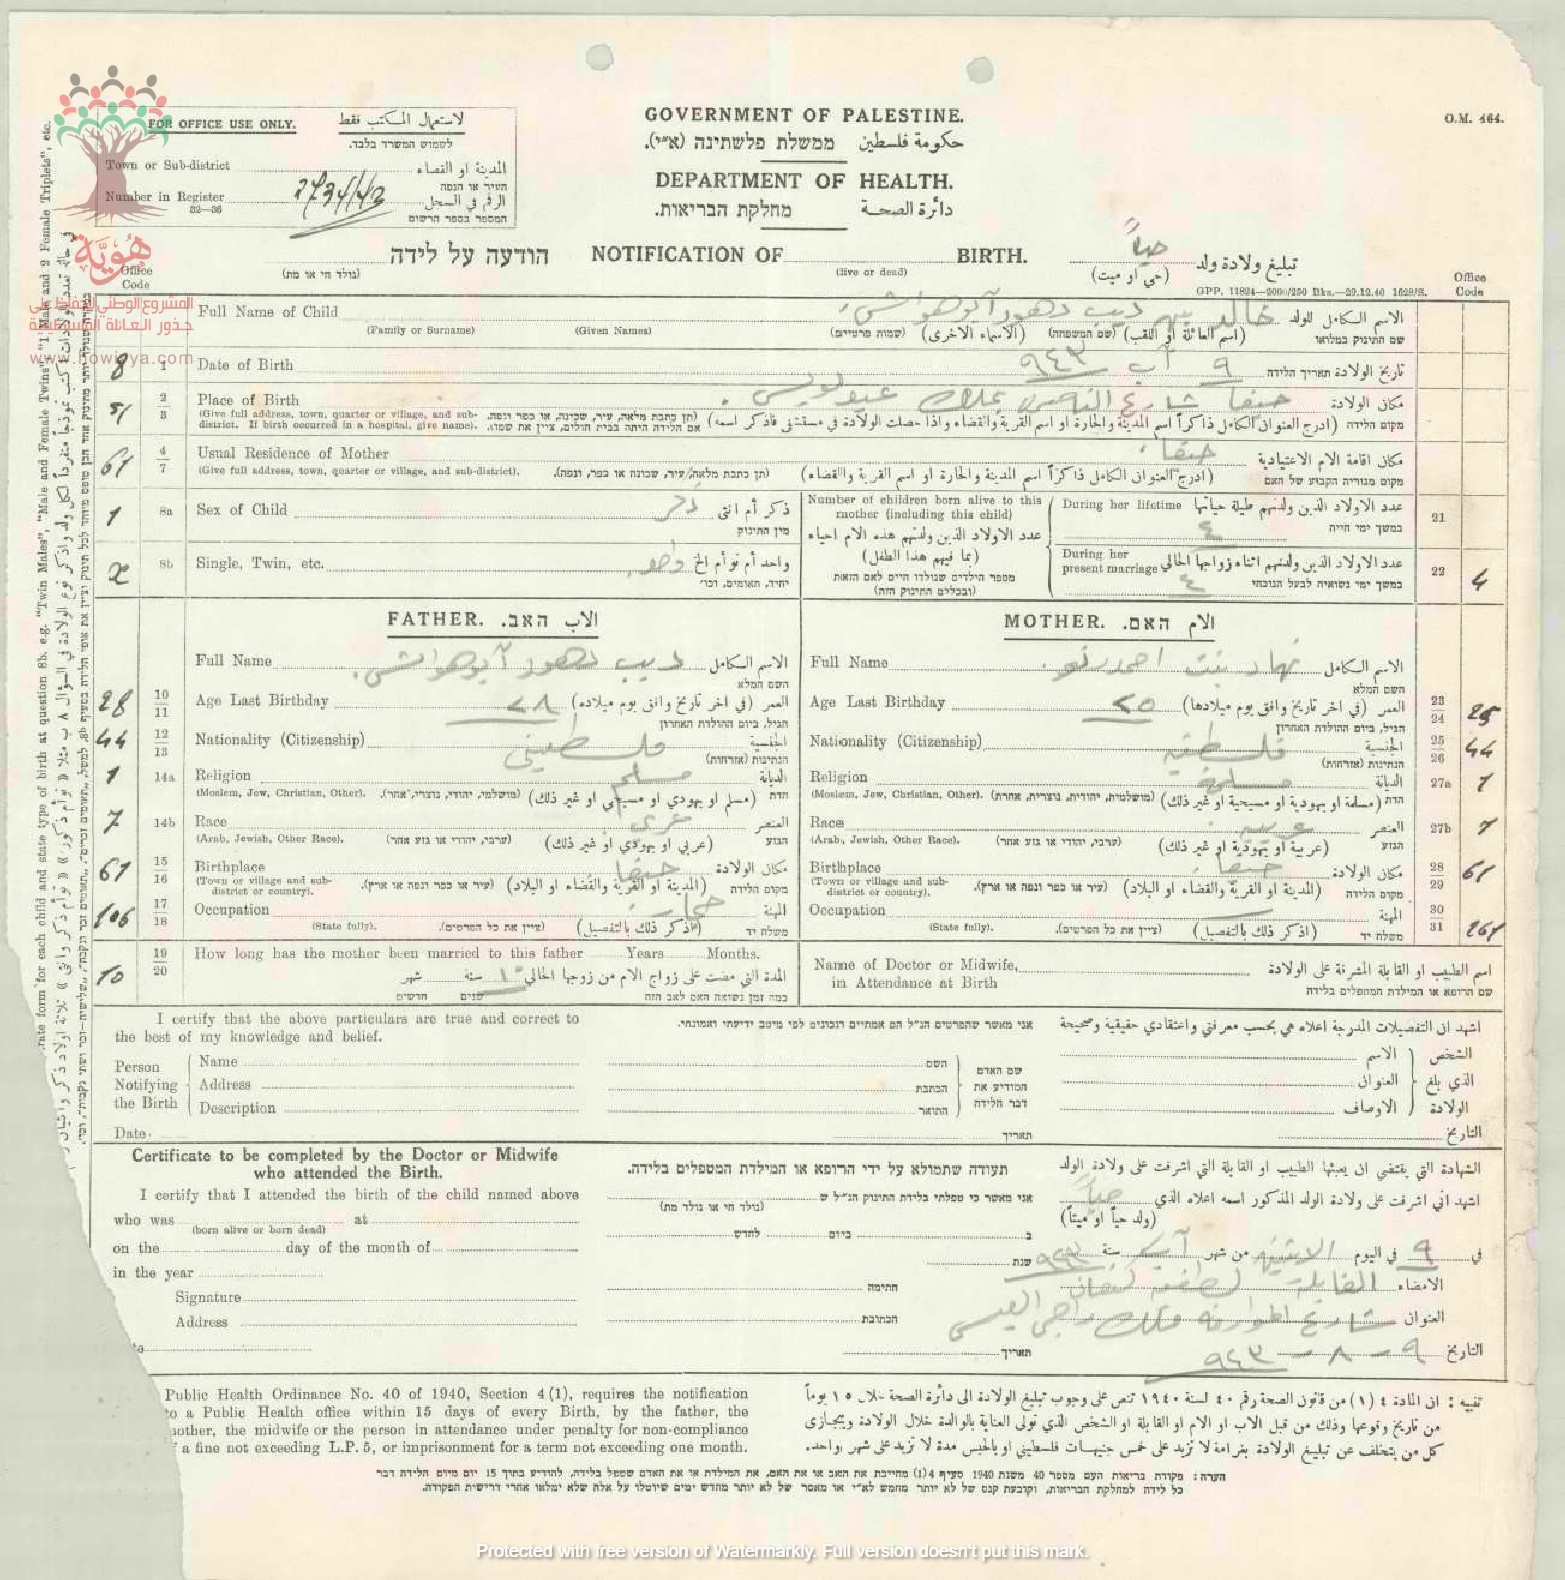 O.M. 164.
FOR OFFICE USE ONLY. لاستعمال المكتب فقط
לשמוש המשרד בלבד.
Town or Sub-district المدينة او القضاء
העיר או הנפה
Number in Register الرقم في السجل
32—36 המספר בספר הרשום
GOVERNMENT OF PALESTINE.
حكومة فلسطين ממשלת פלשתינה (א"י).
DEPARTMENT OF HEALTH.
دائرة الصحة מחלקת הבריאות.
هُويّة
المشروع الوطني للحفاظ على
جذور العائلة الفلسطينية
www.howiyya.com
הודעה על לידה NOTIFICATION OF BIRTH. حياً تبليغ ولادة ولد
(נולד חי או מת) (live or dead) (حي او ميت)
GPP. 11824—2000/250 Bks.—29.12.40 1528/S.
Office Code Office Code
Full Name of Child خالد ديب دهود ابو هواش الاسم الكامل للولد
(Family or Surname) (Given Names) (שמות פרטיים) (الاسماء الاخرى) (שם המשפחה) (اسم العائلة او اللقب) שם התינוק במלואו
8 1 Date of Birth ٩ آب ٩٤٣ تاريخ الولادة תאריך הלידה
51 2 3 Place of Birth حيفا شارع الناصره بملك مكان الولادة
(Give full address, town, quarter or village, and sub-district. If birth occurred in a hospital, give name). (תן כתבת מלאה, עיר, שכונה, או כפר ונפה. אם הלידה היתה בבית חולים, ציין את שמו). (ادرج العنوان الكامل ذاكراً اسم المدينة والحارة او اسم القرية والقضاء واذا حصلت الولادة في مستشفى فاذكر اسمه) מקום הלידה
61 4 7 Usual Residence of Mother حيفا مكان اقامة الام الاعتيادية
(Give full address, town, quarter or village, and sub-district). (תן כתבת מלאה, עיר, שכונה או כפר, ונפה). (ادرج العنوان الكامل ذاكراً اسم المدينة والحارة او اسم القرية والقضاء) מקום מגוריה הקבוע של האם
1 8a Sex of Child ذكر ذكر أم انثى
מין התינוק
8b Single, Twin, etc. واحد واحد أم توأم الخ
יחיד, תאומים, וכו'
Number of children born alive to this mother (including this child)
عدد الاولاد الذين ولدتهم هذه الام احياء
(بما فيهم هذا الطفل)
מספר הילדים שנולדו חיים לאם הזאת
(ובכללם התינוק הזה)
During her lifetime عدد الاولاد الذين ولدتهم طيلة حياتها 21
٤ במשך ימי חייה
During her present marriage عدد الاولاد الذين ولدتهم اثناء زواجها الحالي 22 4
٤ במשך ימי נשואיה לבעל הנוכחי
FATHER. الاب האב.
Full Name ديب دهود ابو هواش الاسم الكامل
השם המלא
28 10 11 Age Last Birthday ٢٨ العمر (في اخر تاريخ وافق يوم ميلاده)
הגיל, ביום ההולדת האחרון
44 12 13 Nationality (Citizenship) فلسطيني الجنسية
הנתינות (אזרחות)
1 14a Religion مسلم الديانة
(Moslem, Jew, Christian, Other). (מושלמי, יהודי, נוצרי, אחר). (مسلم او يهودي او مسيحي او غير ذلك) הדת
7 14b Race عربي العنصر
(Arab, Jewish, Other Race). (ערבי, יהודי או גזע אחר) (عربي او يهودي او غير ذلك) הגזע
61 15 16 Birthplace حيفا مكان الولادة
(Town or village and sub-district or country). (עיר או כפר ונפה או ארץ). (المدينة او القرية والقضاء او البلاد) מקום הלידה
106 17 18 Occupation المهنة
(State fully). (ציין את כל הפרטים). (اذكر ذلك بالتفصيل) משלח יד
MOTHER. الام האם.
Full Name نهاد بنت احمد الاسم الكامل
השם המלא
Age Last Birthday ٢٥ العمر (في اخر تاريخ وافق يوم ميلادها) 23 24 25
הגיל, ביום ההולדת האחרון
Nationality (Citizenship) فلسطينيه الجنسية 25 26 44
הנתינות (אזרחות)
Religion مسلمة الديانة 27a 1
(Moslem, Jew, Christian, Other). (מושלמית, יהודית, נוצרית, אחרת) (مسلمة او يهودية او مسيحية او غير ذلك) הדת
Race عربيه العنصر 27b 7
(Arab, Jewish, Other Race). (ערבי, יהודי או גזע אחר) (عربية او يهودية او غير ذلك) הגזע
Birthplace حيفا مكان الولادة 28 29 61
(Town or village and sub-district or country). (עיר או כפר ונפה או ארץ). (المدينة او القرية والقضاء او البلاد) מקום הלידה
Occupation المهنة 30 31 261
(State fully). (ציין את כל הפרטים). (اذكر ذلك بالتفصيل) משלח יד
10 19 20 How long has the mother been married to this father Years Months.
المدة التي مضت على زواج الام من زوجها الحالي ١٠ سنة شهر
כמה זמן נשואה האם לאב הזה שנים חדשים
Name of Doctor or Midwife, in Attendance at Birth اسم الطبيب او القابلة المشرفة على الولادة
שם הרופא או המילדת המטפלים בלידה
I certify that the above particulars are true and correct to the best of my knowledge and belief.
אני מאשר שהפרטים הנ"ל הם אמתיים ונכונים לפי מיטב ידיעתי ואמונתי.
اشهد ان التفصيلات المدرجة اعلاه هي بحسب معرفتي واعتقادي حقيقية وصحيحة
Person Notifying the Birth Name Address Description
שם האדם המודיע את דבר הלידה השם הכתבת התואר
الشخص الذي بلغ الولادة الاسم العنوان الاوصاف
Date תאריך التاريخ
Certificate to be completed by the Doctor or Midwife who attended the Birth.
תעודה שתמולא על ידי הרופא או המילדת המטפלים בלידה.
الشهادة التي يقتضي ان يعبئها الطبيب او القابلة التي اشرفت على ولادة الولد
I certify that I attended the birth of the child named above
אני מאשר כי טפלתי בלידת התינוק הנ"ל ש
(נולד חי או נולד מת)
اشهد اني اشرفت على ولادة الولد المذكور اسمه اعلاه الذي حياً
(ولد حياً او ميتاً)
who was at
(born alive or born dead)
on the day of the month of
ב ביום לחדש
في ٩ في اليوم الاثنين من شهر آب سنة ٩٤٣
in the year שנת
Signature החתימה القابلة لطفيه كنعان الامضاء
Address הכתובת شارع العنوان
תאריך ٩ - ٨ - ٩٤٣ التاريخ
Public Health Ordinance No. 40 of 1940, Section 4 (1), requires the notification
to a Public Health office within 15 days of every Birth, by the father, the
mother, the midwife or the person in attendance under penalty for non-compliance
of a fine not exceeding L.P. 5, or imprisonment for a term not exceeding one month.
تنبيه : ان المادة ٤ (١) من قانون الصحة رقم ٤٠ لسنة ١٩٤٠ تنص على وجوب تبليغ الولادة الى دائرة الصحة خلال ١٥ يوماً
من تاريخ وقوعها وذلك من قبل الاب او الام او القابلة او الشخص الذي تولى العناية بالوالدة خلال الولادة ويجازى
كل من يتخلف عن تبليغ الولادة بغرامة لا تزيد على خمس جنيهات فلسطيني او بالحبس مدة لا تزيد على شهر واحد.
הערה: פקודת בריאות העם מספר 40 משנת 1940 סעיף 4(1) מחייבת את האב או את האם, את המילדת או את האדם שטפל בלידה, להודיע בתוך 15 יום מיום הלידה דבר
כל לידה למחלקת הבריאות, וקובעת קנס של לא יותר מחמש לא"י או מאסר של לא יותר מחדש ימים שיוטלו על אלה שלא ימלאו אחרי דרישת הפקודה.
Protected with free version of Watermarkly. Full version doesn't put this mark.